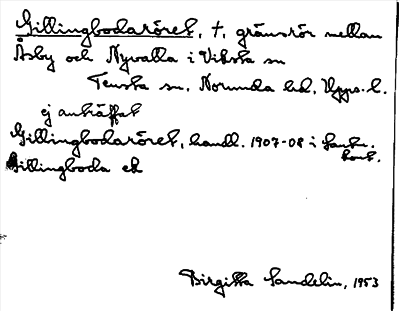 Gillingbodaröret, †, gränsrör mellan
Åsby och Nyvalla i Viksta sn
Tensta sn, Norunda hd, Upps. l.
ej anträffat
Gillingbodaröret, handl. 1907-08 i Lantm.
kont.
Gillingboda ek
Birgitta Sandelin, 1953